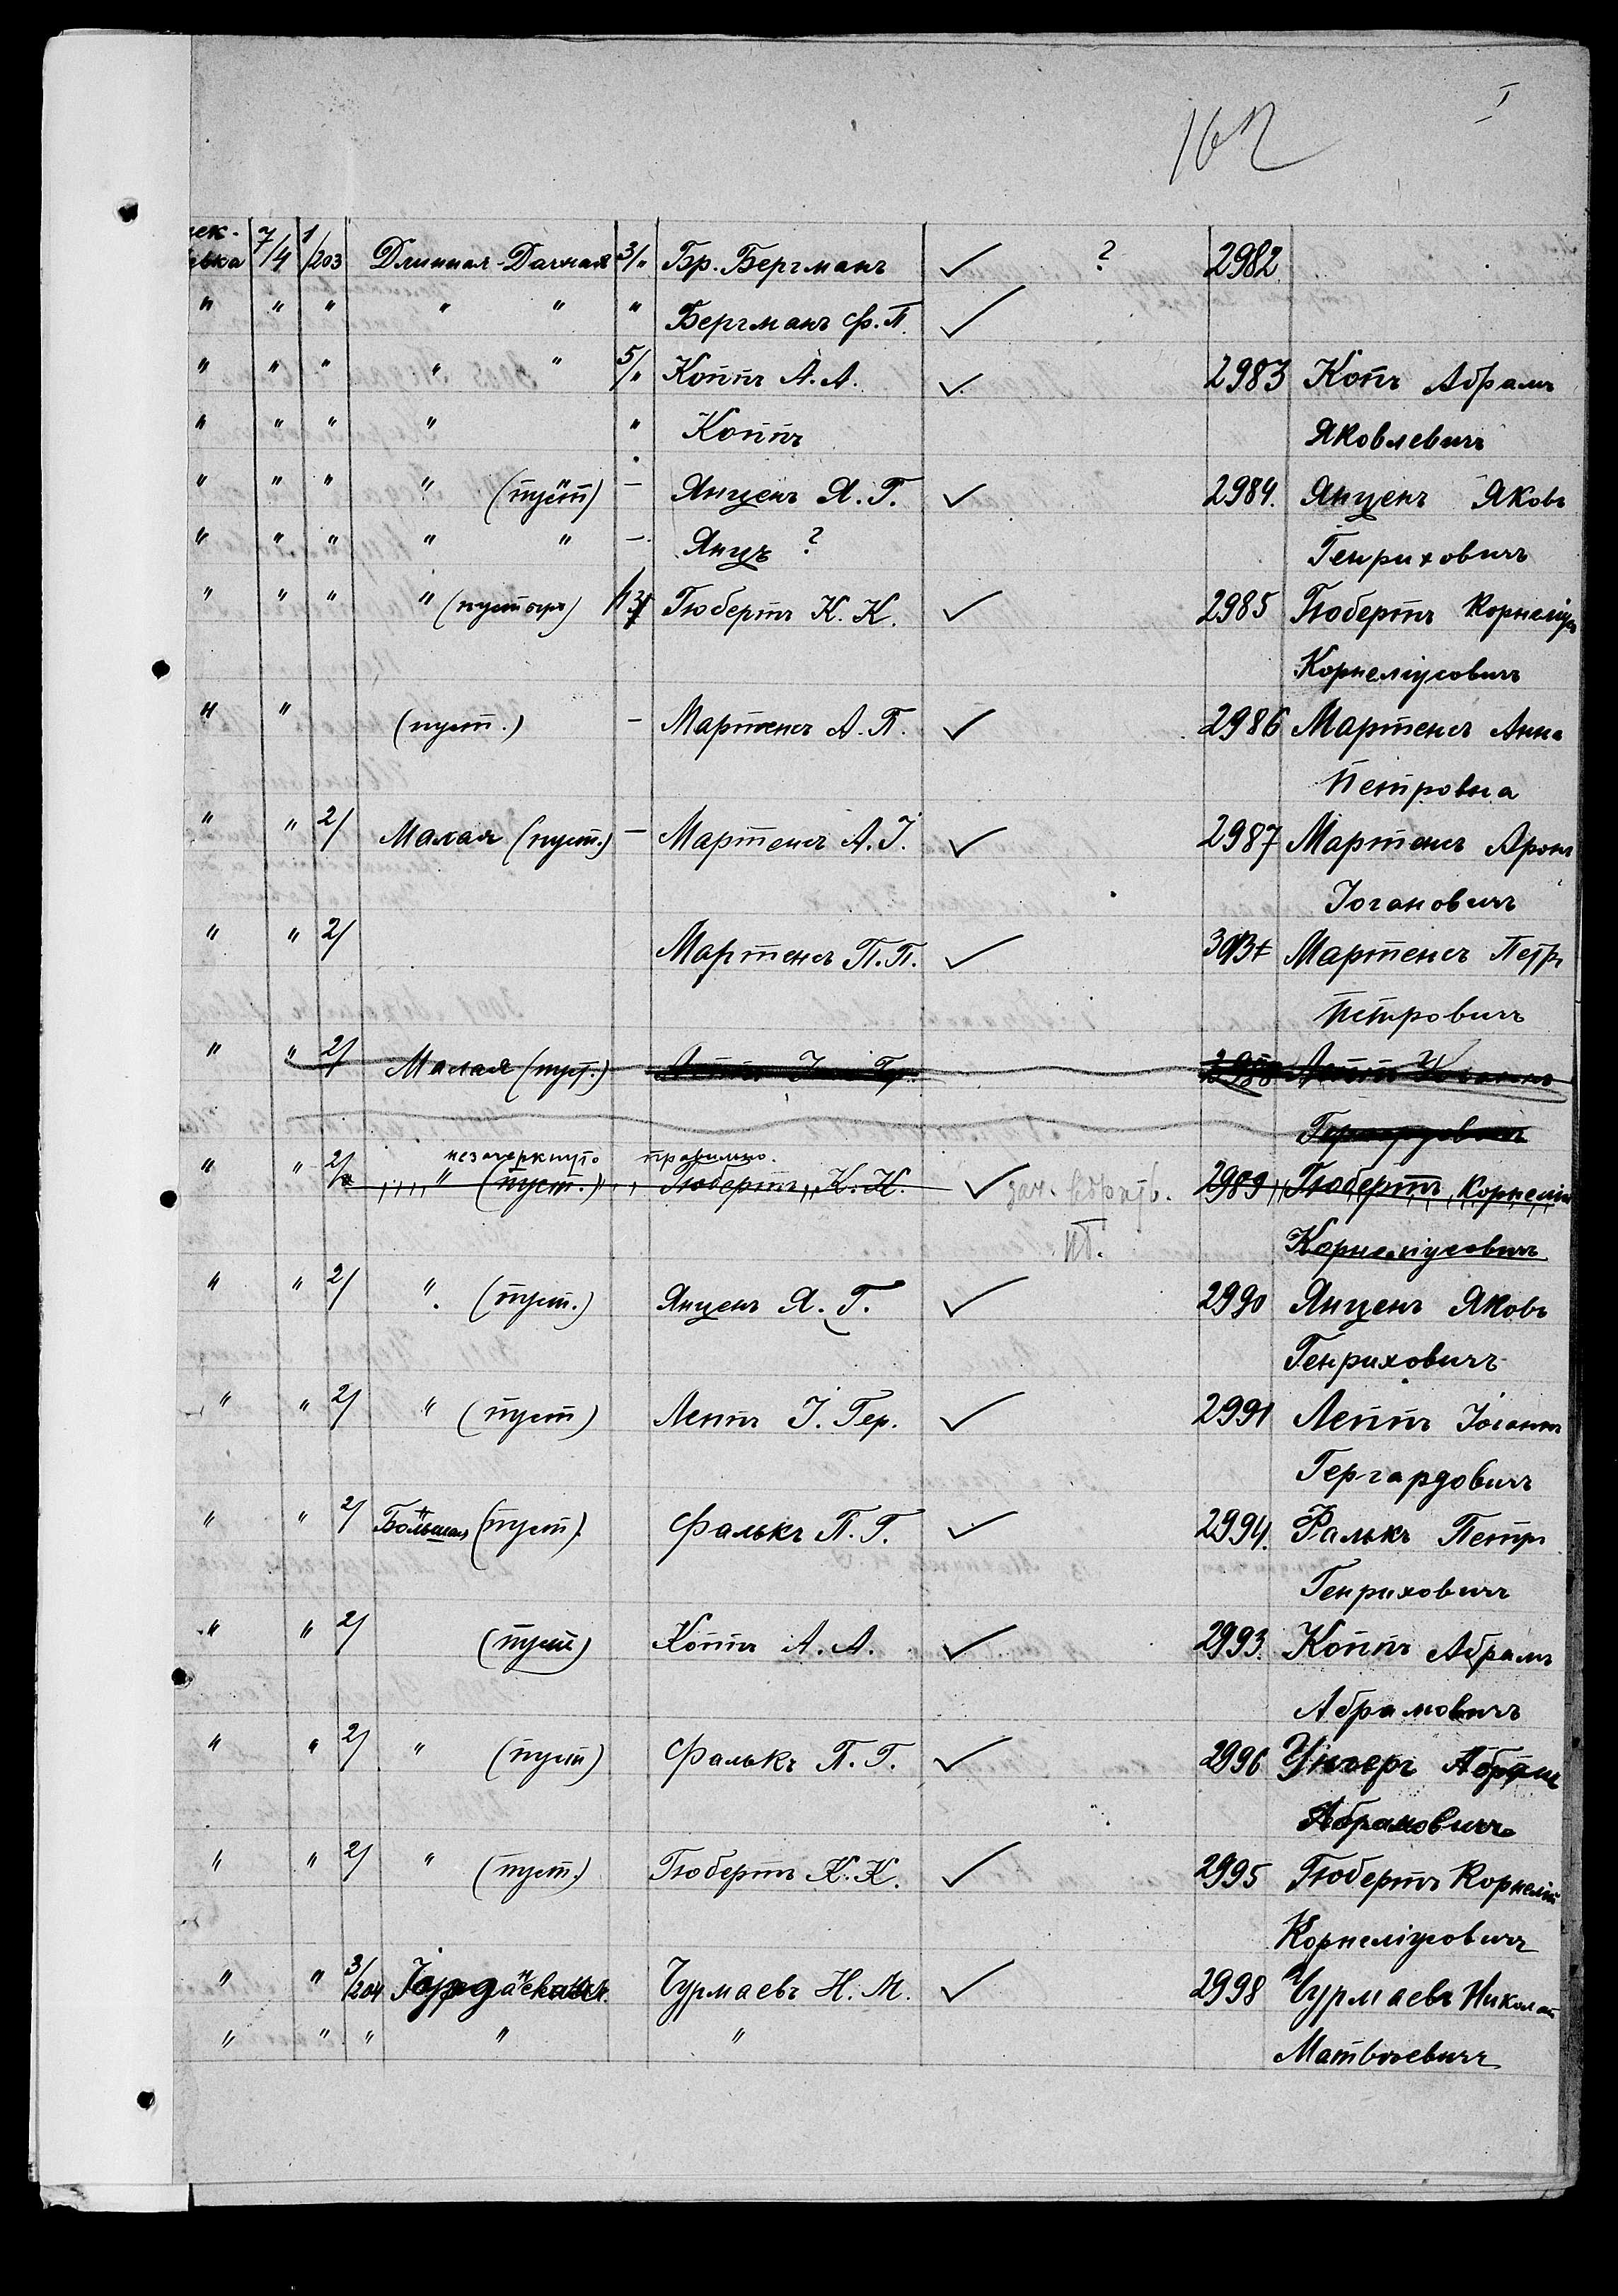 162
1
7/4 1/203 Длинная-Дачная 3/" Бр. Бергманъ ✓ ? 2982
" " " " " " Бергманъ Ф. П. ✓
" " " " " 5/" Коппъ А. А. ✓ 2983 Копъ Абрамъ
" " " " " Коппъ Яковлевичъ
" " " " (пуст) — Янценъ Я. Г. ✓ 2984. Янценъ Яковъ
" " " " " — Янцъ ? Генриховичъ
" " " " Гюбертъ К. К. ✓ 2985 Гюбертъ Корнеліусъ
Корнеліусовичъ
" " (пуст.) — Мартенсъ А. П. ✓ 2986 Мартенсъ Анна
Петровна
" " 2/ Малая (пуст.) — Мартенсъ А. І. ✓ 2987 Мартенсъ Аронъ
Іогановичъ
" " 2/ Мартенсъ П. П. ✓ Мартенсъ Петръ
Петровичъ
" " 2/ Малая (пуст.)
" " 2/ незачеркнуто правильно.
" (пуст.) Гюбертъ К. К. ✓ 2989 Гюбертъ Корнелій
Корнеліусовичъ
" " 2/ " (пуст.) Янценъ Я. Г. ✓ 2990 Янценъ Яковъ
Генриховичъ
" " 2/ " (пуст) Леппъ І. Гер. ✓ 2991 Леппъ Іоганнъ
Гергардовичъ
" " 2/ Большая (пуст). Фалькъ П. Г. ✓ 2994. Фалькъ Петръ
Генриховичъ
" " 2/ (пуст) Коппъ А. А. ✓ 2993. Коппъ Абрамъ
Абрамовичъ
" " 2/ " (пуст) Фалькъ П. Г. ✓ 2996 Унгеръ Абрамъ
Абрамовичъ
" " 2/ " (пуст.) Гюбертъ К. К. ✓ 2995 Гюбертъ Корнелій
Корнеліусовичъ
" " 3/204 Чурмаевъ Н. М. ✓ 2998 Чурмаевъ Николай
" " " " " Матвѣевичъ